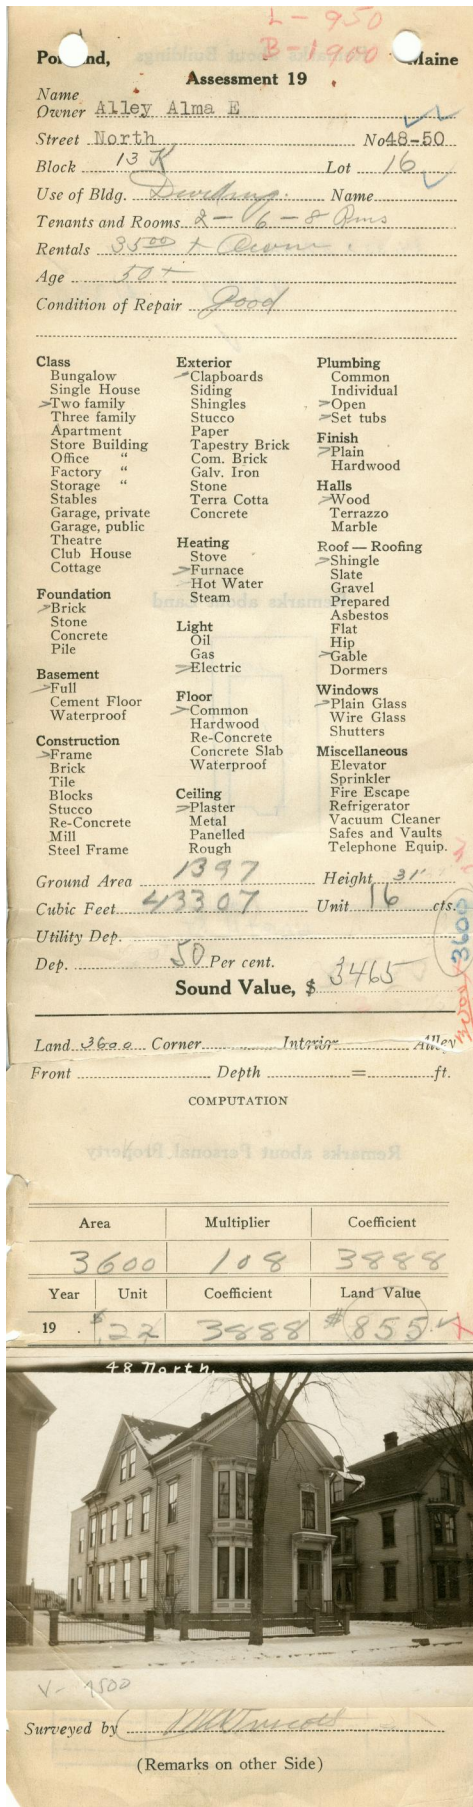 L-950
B-1900
Portland, Maine
Assessment 19
Name
Owner Alley Alma E
Street North No48-50
Block 13 K Lot 16
Use of Bldg. Dwelling. Name
Tenants and Rooms 2-6-8 Rms
Rentals 3500 + Owner
Age 50+
Condition of Repair Good
Class
Bungalow
Single House
>Two family
Three family
Apartment
Store Building
Office "
Factory "
Storage "
Stables
Garage, private
Garage, public
Theatre
Club House
Cottage
Foundation
>Brick
Stone
Concrete
Pile
Basement
>Full
Cement Floor
Waterproof
Construction
>Frame
Brick
Tile
Blocks
Stucco
Re-Concrete
Mill
Steel Frame
Exterior
>Clapboards
Siding
Shingles
Stucco
Paper
Tapestry Brick
Com. Brick
Galv. Iron
Stone
Terra Cotta
Concrete
Heating
Stove
>Furnace
Hot Water
Steam
Light
Oil
Gas
>Electric
Floor
>Common
Hardwood
Re-Concrete
Concrete Slab
Waterproof
Ceiling
>Plaster
Metal
Panelled
Rough
Plumbing
Common
Individual
>Open
>Set tubs
Finish
>Plain
Hardwood
Halls
>Wood
Terrazzo
Marble
Roof — Roofing
>Shingle
Slate
Gravel
Prepared
Asbestos
Flat
Hip
>Gable
Dormers
Windows
>Plain Glass
Wire Glass
Shutters
Miscellaneous
Elevator
Sprinkler
Fire Escape
Refrigerator
Vacuum Cleaner
Safes and Vaults
Telephone Equip.
Ground Area 1397 Height 31'
Cubic Feet 43307 Unit 16 cts.
Utility Dep.
Dep. 50 Per cent.
Sound Value, $ 3465
3600
Land 3600 Corner Interior Alley
Front Depth = ft.
COMPUTATION
Remarks about Personal Property
Area Multiplier Coefficient
3600 108 3888
Year Unit Coefficient Land Value
19 $.22 3888 $855
48 North.
Surveyed by
(Remarks on other Side)